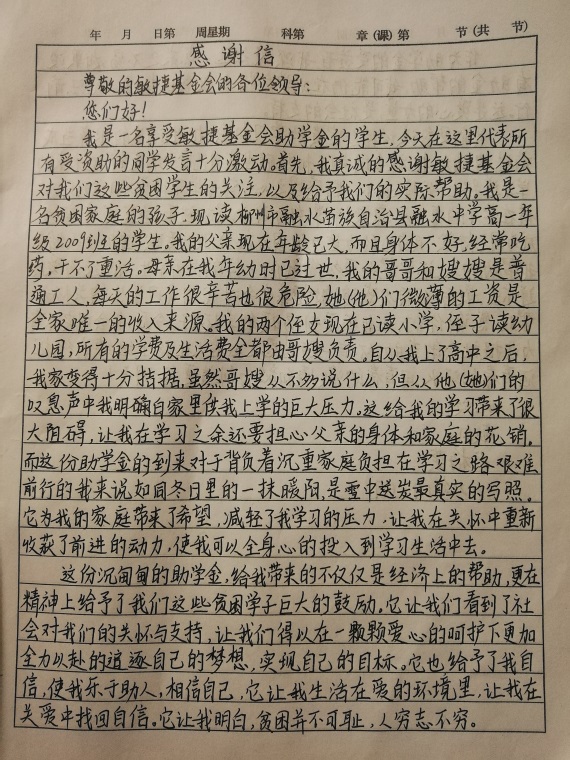 年 月 日第 周星期 科第 章(课)第 节(共 节)
感谢信
尊敬的敏捷基金会的各位领导:
您们好!
我是一名享受敏捷基金会助学金的学生,今天在这里代表所
有受资助的同学发言十分激动。首先,我真诚的感谢敏捷基金会
对我们这些贫困学生的关注,以及给予我们的实际帮助。我是一
名贫困家庭的孩子,现读柳州市融水苗族自治县融水中学高一年
级2009班的学生。我的父亲现在年龄已大,而且身体不好,经常吃
药,干不了重活。母亲在我年幼时已过世,我的哥哥和嫂嫂是普
通工人,每天的工作很辛苦也很危险,她(他)们微薄的工资是
全家唯一的收入来源。我的两个侄女现在已读小学,侄子读幼
儿园,所有的学费及生活费全都由哥嫂负责。自从我上了高中之后,
我家变得十分拮据,虽然哥嫂从不多说什么,但从他(她)们的
叹息声中我明确白家里供我上学的巨大压力。这给我的学习带来了很
大阻碍,让我在学习之余还要担心父亲的身体和家庭的花销。
而这份助学金的到来对于背负着沉重家庭负担在学习之路艰难
前行的我来说如同冬日里的一抹暖阳,是雪中送炭最真实的写照。
它为我的家庭带来了希望,减轻了我学习的压力,让我在关怀中重新
收获了前进的动力,使我可以全身心的投入到学习生活中去。
这份沉甸甸的助学金,给我带来的不仅仅是经济上的帮助,更在
精神上给予了我们这些贫困学子巨大的鼓励。它让我们看到了社
会对我们的关怀与支持,让我们得以在一颗颗爱心的呵护下更加
全力以赴的追逐自己的梦想,实现自己的目标。它也给予了我自
信,使我乐于助人,相信自己,它让我生活在爱的环境里,让我在
关爱中找回自信。它让我明白,贫困并不可耻,人穷志不穷。